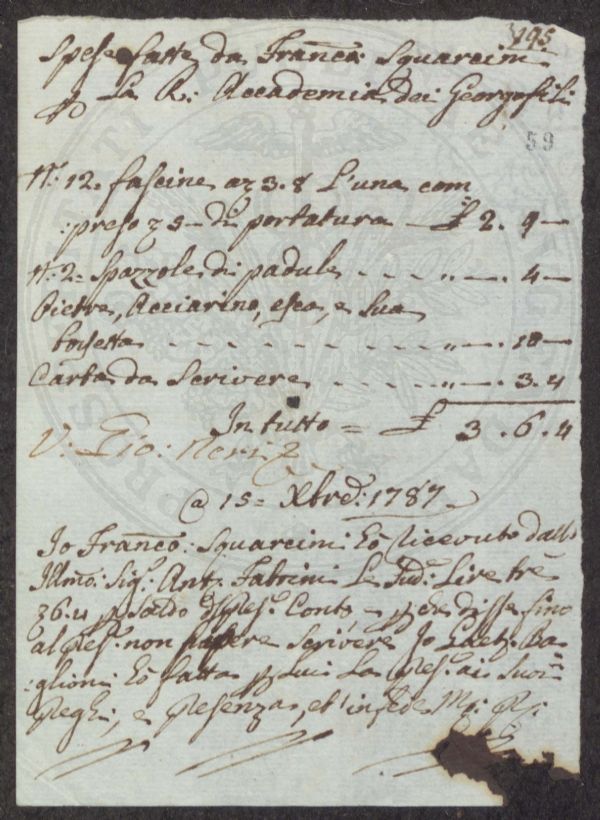 195
Spese fatte da Franco: Squarcini
p La R: Accademia dei Georgofili
59
N: 12. fascine a z 3.8 L'una com
:preso z 5 - di portatura — £ 2. 9 —
N. 2 = Spazzole di padule - - - „ —. 4 —
Pietre, Acciarino, esca, e sua
borsetta - - - - - - - „ —. 10 —
Carta da Scrivere - - - - „ —. 3. 4
In tutto = £ 3. 6. 4
V: Gio: Neri
@ 15 = Xbre: 1787.
Io Franco: Squarcini hò ricevuto dall
Illmo: Sig: Ant: Fabrini Le Sud: Lire tre
z 6.4 p Saldo del pres: Conto — p che disse fino
al pres: non sapere Scrivere Io Gaet: Ba=
:glioni hò fatta p Lui La pres: ai Suoi
Preghi, e presenza, et in fede Mp: P: